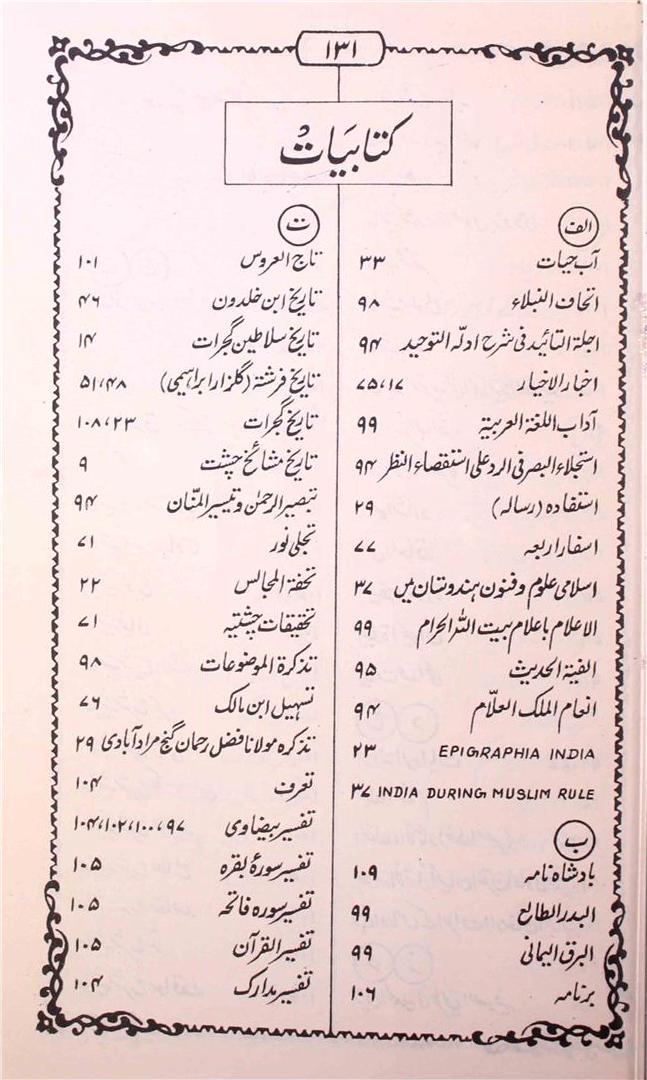 ۱۳۱
کتابیات
الف
آب حیات ۳۳
اتحاف النبلاء ۹۸
اجلۃ التائید فی شرح ادلہ التوحید ۹۴
اخبار الاخیار ۱۷، ۷۵
آداب اللغۃ العربیۃ ۹۹
استجلاء البصر فی الرد علی استقصاء النظر ۹۴
استفادہ (رسالہ) ۲۹
اسفار اربعہ ۷۷
اسلامی علوم و فنون ہندوستان میں ۳۷
الاعلام باعلام بیت اللہ الحرام ۹۹
الفیۃ الحدیث ۹۵
انعام الملک العلاّم ۹۴
EPIGRAPHIA INDIA ۲۳
INDIA DURING MUSLIM RULE ۳۷
ب
بادشاہ نامہ ۱۰۹
البدر الطالع ۹۹
البرق الیمانی ۹۹
برنامہ ۱۰۶
ت
تاج العروس ۱۰۱
تاریخ ابن خلدون ۴۶
تاریخ سلاطین گجرات ۱۴
تاریخ فرشتۃ (گلزار ابراہیمی) ۴۸، ۵۱
تاریخ گجرات ۲۳، ۱۰۸
تاریخ مشائخ چشت ۹
تبصیر الرحمٰن و تیسیر المنّان ۹۴
تجلی نور ۷۱
تحفۃ المجالس ۲۲
تحقیقات چشتیہ ۷۱
تذکرۃ الموضوعات ۹۸
تسہیل ابن مالک ۷۶
تذکرہ مولانا فضل رحمان گنج مرادآبادی ۲۹
تعرف ۱۰۴
تفسیر بیضاوی ۹۷، ۱۰۰، ۱۰۲، ۱۰۴
تفسیر سورۂ بقرہ ۱۰۵
تفسیر سورہ فاتحہ ۱۰۵
تفسیر القرآن ۱۰۵
تفسیر مدارک ۱۰۴